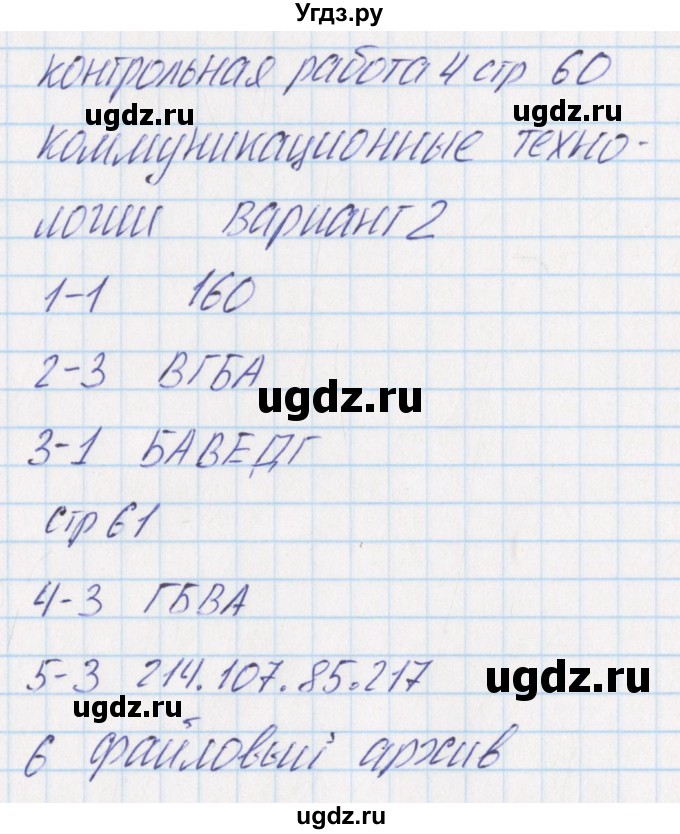 Угдз.ру
контрольная работа 4 стр 60
ugdz.ru ugdz.ru
коммуникационные техно-
ugdz.ru
логии вариант 2
1-1 160
2-3 ВГБА
ugdz.ru
3-1 БАВЕДГ
стр 61
4-3 ГБВА
5-3 214.107.85.217
ugdz.ru
ugdz.ru
6 файловый архив
ugdz.ru